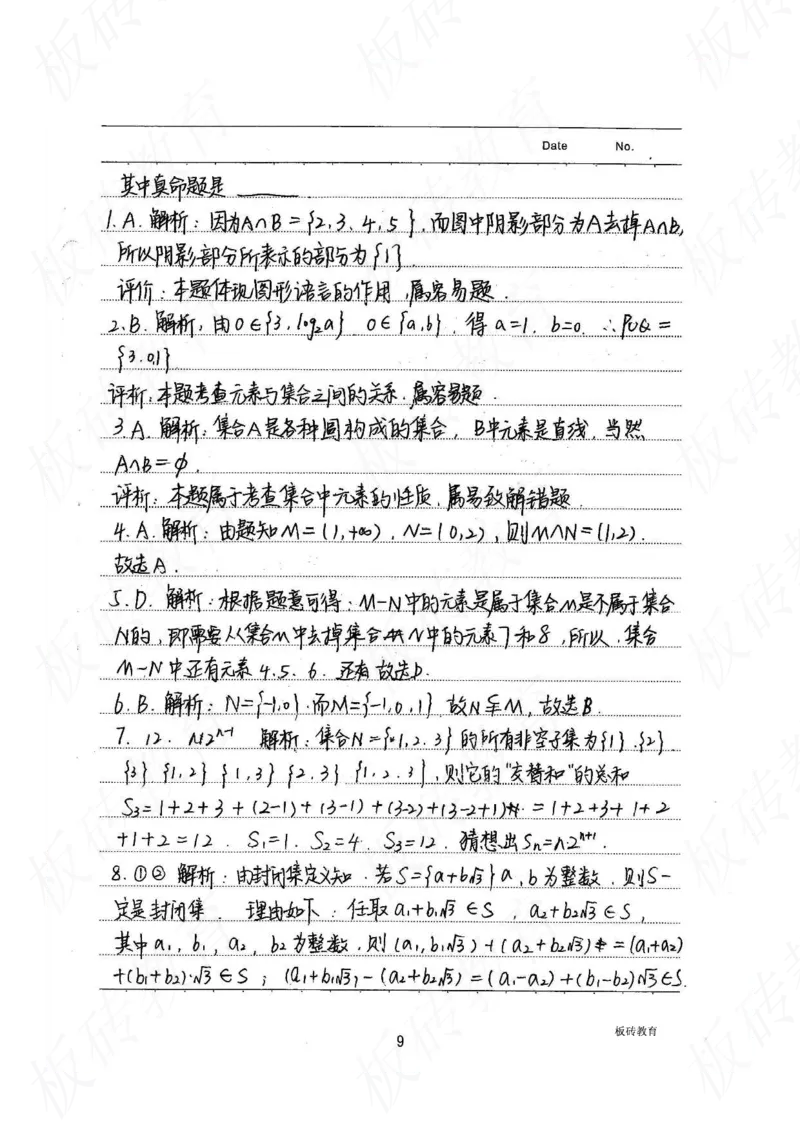 Date No.
其中真命题是 ______
1. A. 解析：因为A∩B={2,3,4,5}，而图中阴影部分为A去掉A∩B,
所以阴影部分所表示的部分为{1}
评价：本题体现图形语言的作用，属容易题.
2. B. 解析，由0∈{3,log₂a} 0∈{a,b}. 得 a=1. b=0. ∴P∪Q=
{3.0.1}
评析：本题考查元素与集合之间的关系. 属容易题.
3. A. 解析：集合A是各种圆构成的集合，B中元素是直线，当然
A∩B=∅.
评析：本题属于考查集合中元素的性质，属易致解错题.
4. A. 解析：由题知M=(1,+∞)，N=(0,2)，则M∩N=(1,2).
故选A.
5. D. 解析：根据题意可得：M-N中的元素是属于集合M是不属于集合
N的，即需要从集合M中去掉集合N中的元素7和8，所以，集合
M-N中还有元素4.5.6. 还有 故选D.
6. B. 解析：N={-1,0}. 而M={-1,0,1} 故N⫋M，故选B.
7. 12. n2ⁿ⁻¹ 解析：集合N={1,2.3}的所有非空子集为{1}.{2}.
{3} {1,2} {1,3} {2.3} {1.2.3}，则它的"交替和"的总和
S₃=1+2+3+(2-1)+(3-1)+(3-2)+(3-2+1) =1+2+3+1+2
+1+2=12. S₁=1. S₂=4. S₃=12. 猜想出Sₙ=n2ⁿ⁺¹.
8. ①② 解析：由封闭集定义知. 若S={a+b√3} a,b为整数. 则S一
定是封闭集. 理由如下：任取a₁+b₁√3∈S，a₂+b₂√3∈S，
其中a₁，b₁，a₂，b₂为整数. 则(a₁,b₁√3)+(a₂+b₂√3)=(a₁+a₂)
+(b₁+b₂)·√3∈S；(a₁+b₁√3)-(a₂+b₂√3)=(a₁-a₂)+(b₁-b₂)√3∈S.
板砖教育
9